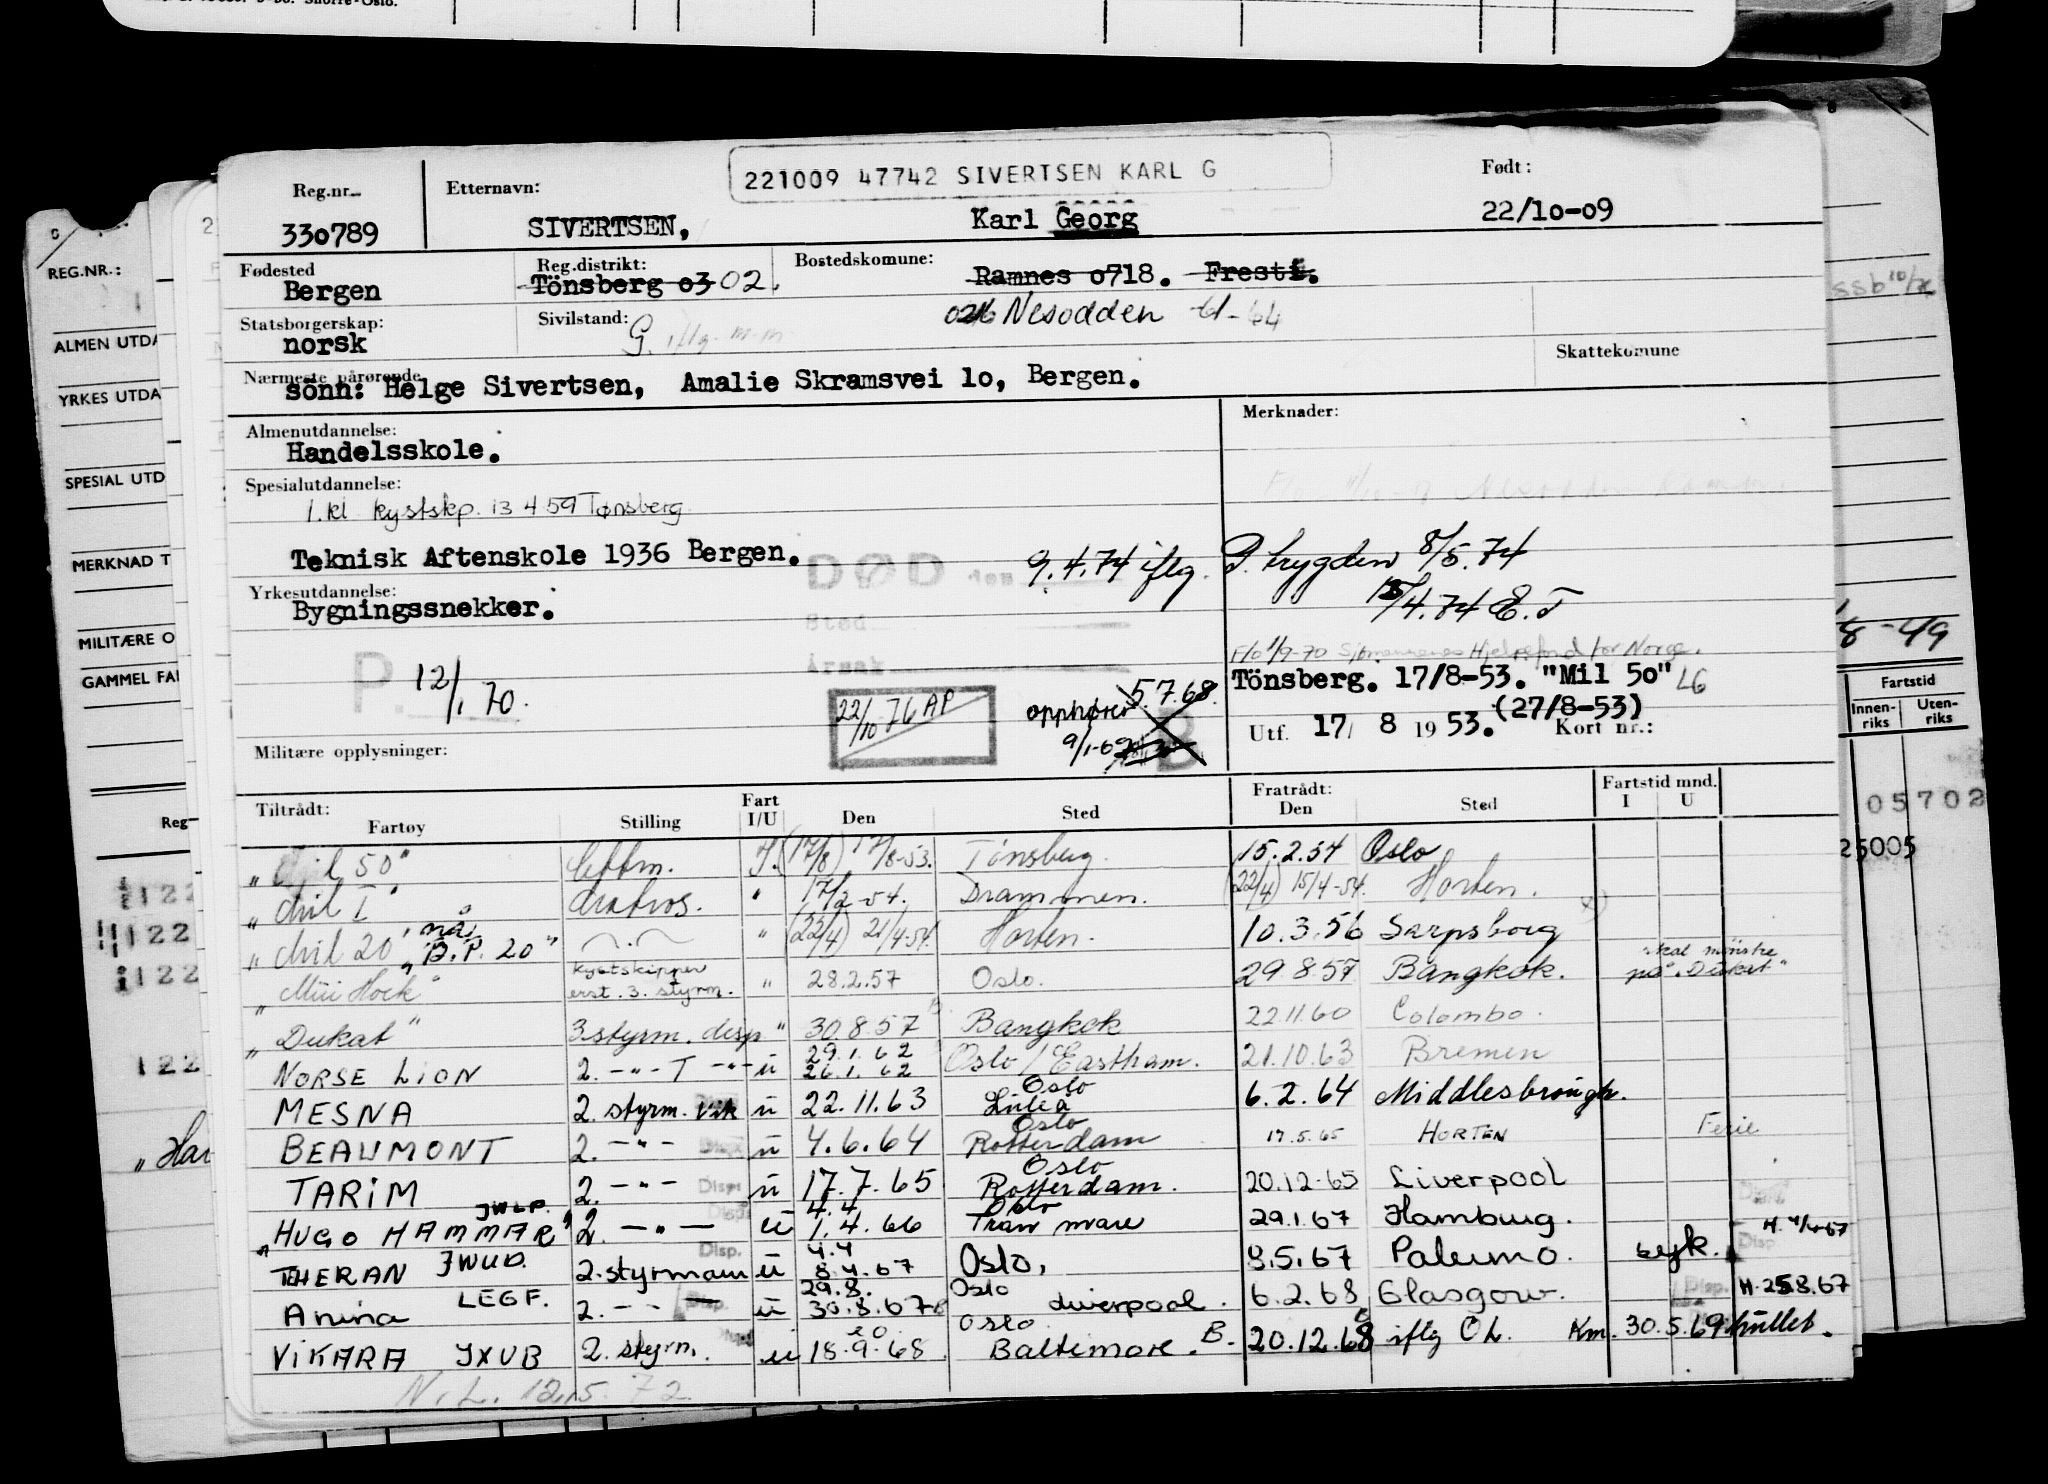 221009 47742 SIVERTSEN KARL G
Reg.nr.
330789
Etternavn:
SIVERTSEN,
Karl Georg
Født:
22/10-09
Fødested
Bergen
Reg.distrikt:
Tönsberg 03 02.
Bostedskomune:
Ramnes 0718.
Statsborgerskap:
norsk
Sivilstand:
G.
Nesodden 61-64
Skattekomune
Nærmeste pårørende
sönn: Helge Sivertsen, Amalie Skramsvei 10, Bergen.
Almenutdannelse:
Handelsskole.
Merknader:
Spesialutdannelse:
1.kl kystskp. 13 4 59 Tønsberg
Teknisk Aftenskole 1936 Bergen.
DØD
9.4.74 iflg. P. trygden 8/5.74
Yrkesutdannelse:
Bygningssnekker.
Sted
/4.74 E.T
Årsak
P. 12/1.70.
Tönsberg. 17/8-53. "Mil 50"
22/10 76 AP
opphører
5.7.68.
(27/8-53)
Utf. 17/ 8 1953. Kort nr.:
Militære opplysninger:
Tiltrådt:
Fartøy
Stilling
Fart I/U
Den
Sted
Fratrådt:
Den
Sted
Fartstid mnd.
I U
50" (17/8) 17/8-53. Tönsberg. 15.2.54 Oslo
"Mil I" Matros. " 17/2-54. Drammen. (22/4) 15/4-54. Horten.
"Mil 20" nå "B.P. 20" " (22/4) 21/4-54. Horten. 10.3.56 Sarpsborg
kystskipper
erst. 3. styrm. " 28.2.57 Oslo. 29 8 57 Bangkok. skal mönstre på "Dukat"
"Dukat" 3 styrm. disp " 30.8.57 Bangkok 22.11.60 Colombo.
NORSE LION 2. -"- T -"- u 29.1.62 26.1.62 Oslo / Eastham. 21.10.63 Bremen
MESNA 2. styrm. Vik u 22.11.63 Oslo Luleå 6.2.64 Middlesbrough.
BEAUMONT 2. -"- u 4.6.64 Oslo Rotterdam 17.5.65 HORTEN Ferie
TARIM 2. -"- Disp. u 17.7.65 Oslo Rotterdam. 20.12.65 Liverpool
"HUGO HAMMAR" JWLP. 2. -"- u 4.4 1.4.66 Oslo 29.1.67 Hamburg.
TEHERAN JWUD. 2. styrmann Disp. u 4.4 8.4.67 Oslo, 8.5.67 Palermo. syk. Disp H. 4/4-67
Anina LEGF. 2. - - Disp. u 29.8. 30.8.67 Oslo Liverpool. 6.2.68 Glasgow. Disp. H. 25.8.67
VIKARA JXUB 2. styrm. u 18.9.68 Oslo Baltimore. B. 20.12.68 iflg O L. Km. 30.5.69 hullet.
N.L. 12.5.72
REG.NR.:
ALMEN UTDA
YRKES UTDA
SPESIAL UTD
MERKNAD T
MILITÆRE O
GAMMEL FA
Reg
122
122
122
122
"Har
8-49
Fartstid
Innen-riks
Uten-riks
05702
25005